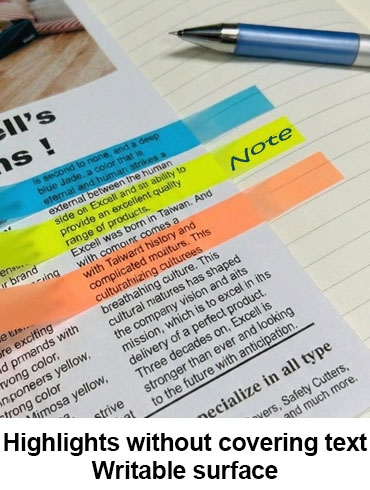 ell's
ns !
is second to none, and a deep
blue Jade, a color that is
eternal and human strikes a
external between the human
side on Excell and sti ability to
provide an excellent quality
range of products.
Excell was born in Taiwan. And
with compint comes a
with Taiward history and
complicated moiiturs. This
culturalizing culturees
breathathing culture. This
cultural matures has shaped
the company vision and aits
mission, which is to excel in iths
delivery of a perfect product.
Three decades on, Excell is
stronger than ever and looking
to the future with anticipation.
Note
brand
re exciting
color,
yellow,
strong color
Mimosa yellow,
strive
pecialize in all type
Safety Cutters,
and much more.
Highlights without covering text
Writable surface